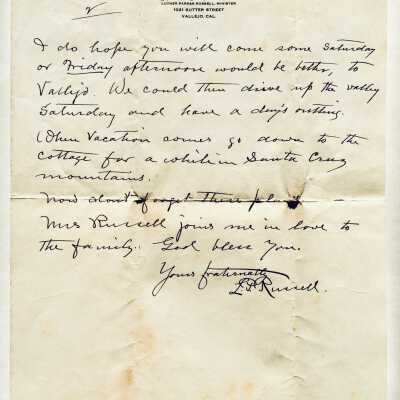 LUTHER PARKER RUSSELL, MINISTER
1021 SUTTER STREET
VALLEJO, CAL.
2
I do hope you will come some Saturday
or Friday afternoon would be better, to
Vallejo. We could then drive up the valley
Saturday and have a day's outing.
When Vacation comes go down to the
cottage for a while in Santa Cruz
mountains.
Now don't forget these plans
Mrs Russell joins me in love to
the family. God bless you.
Yours fraternally
L.P. Russell.